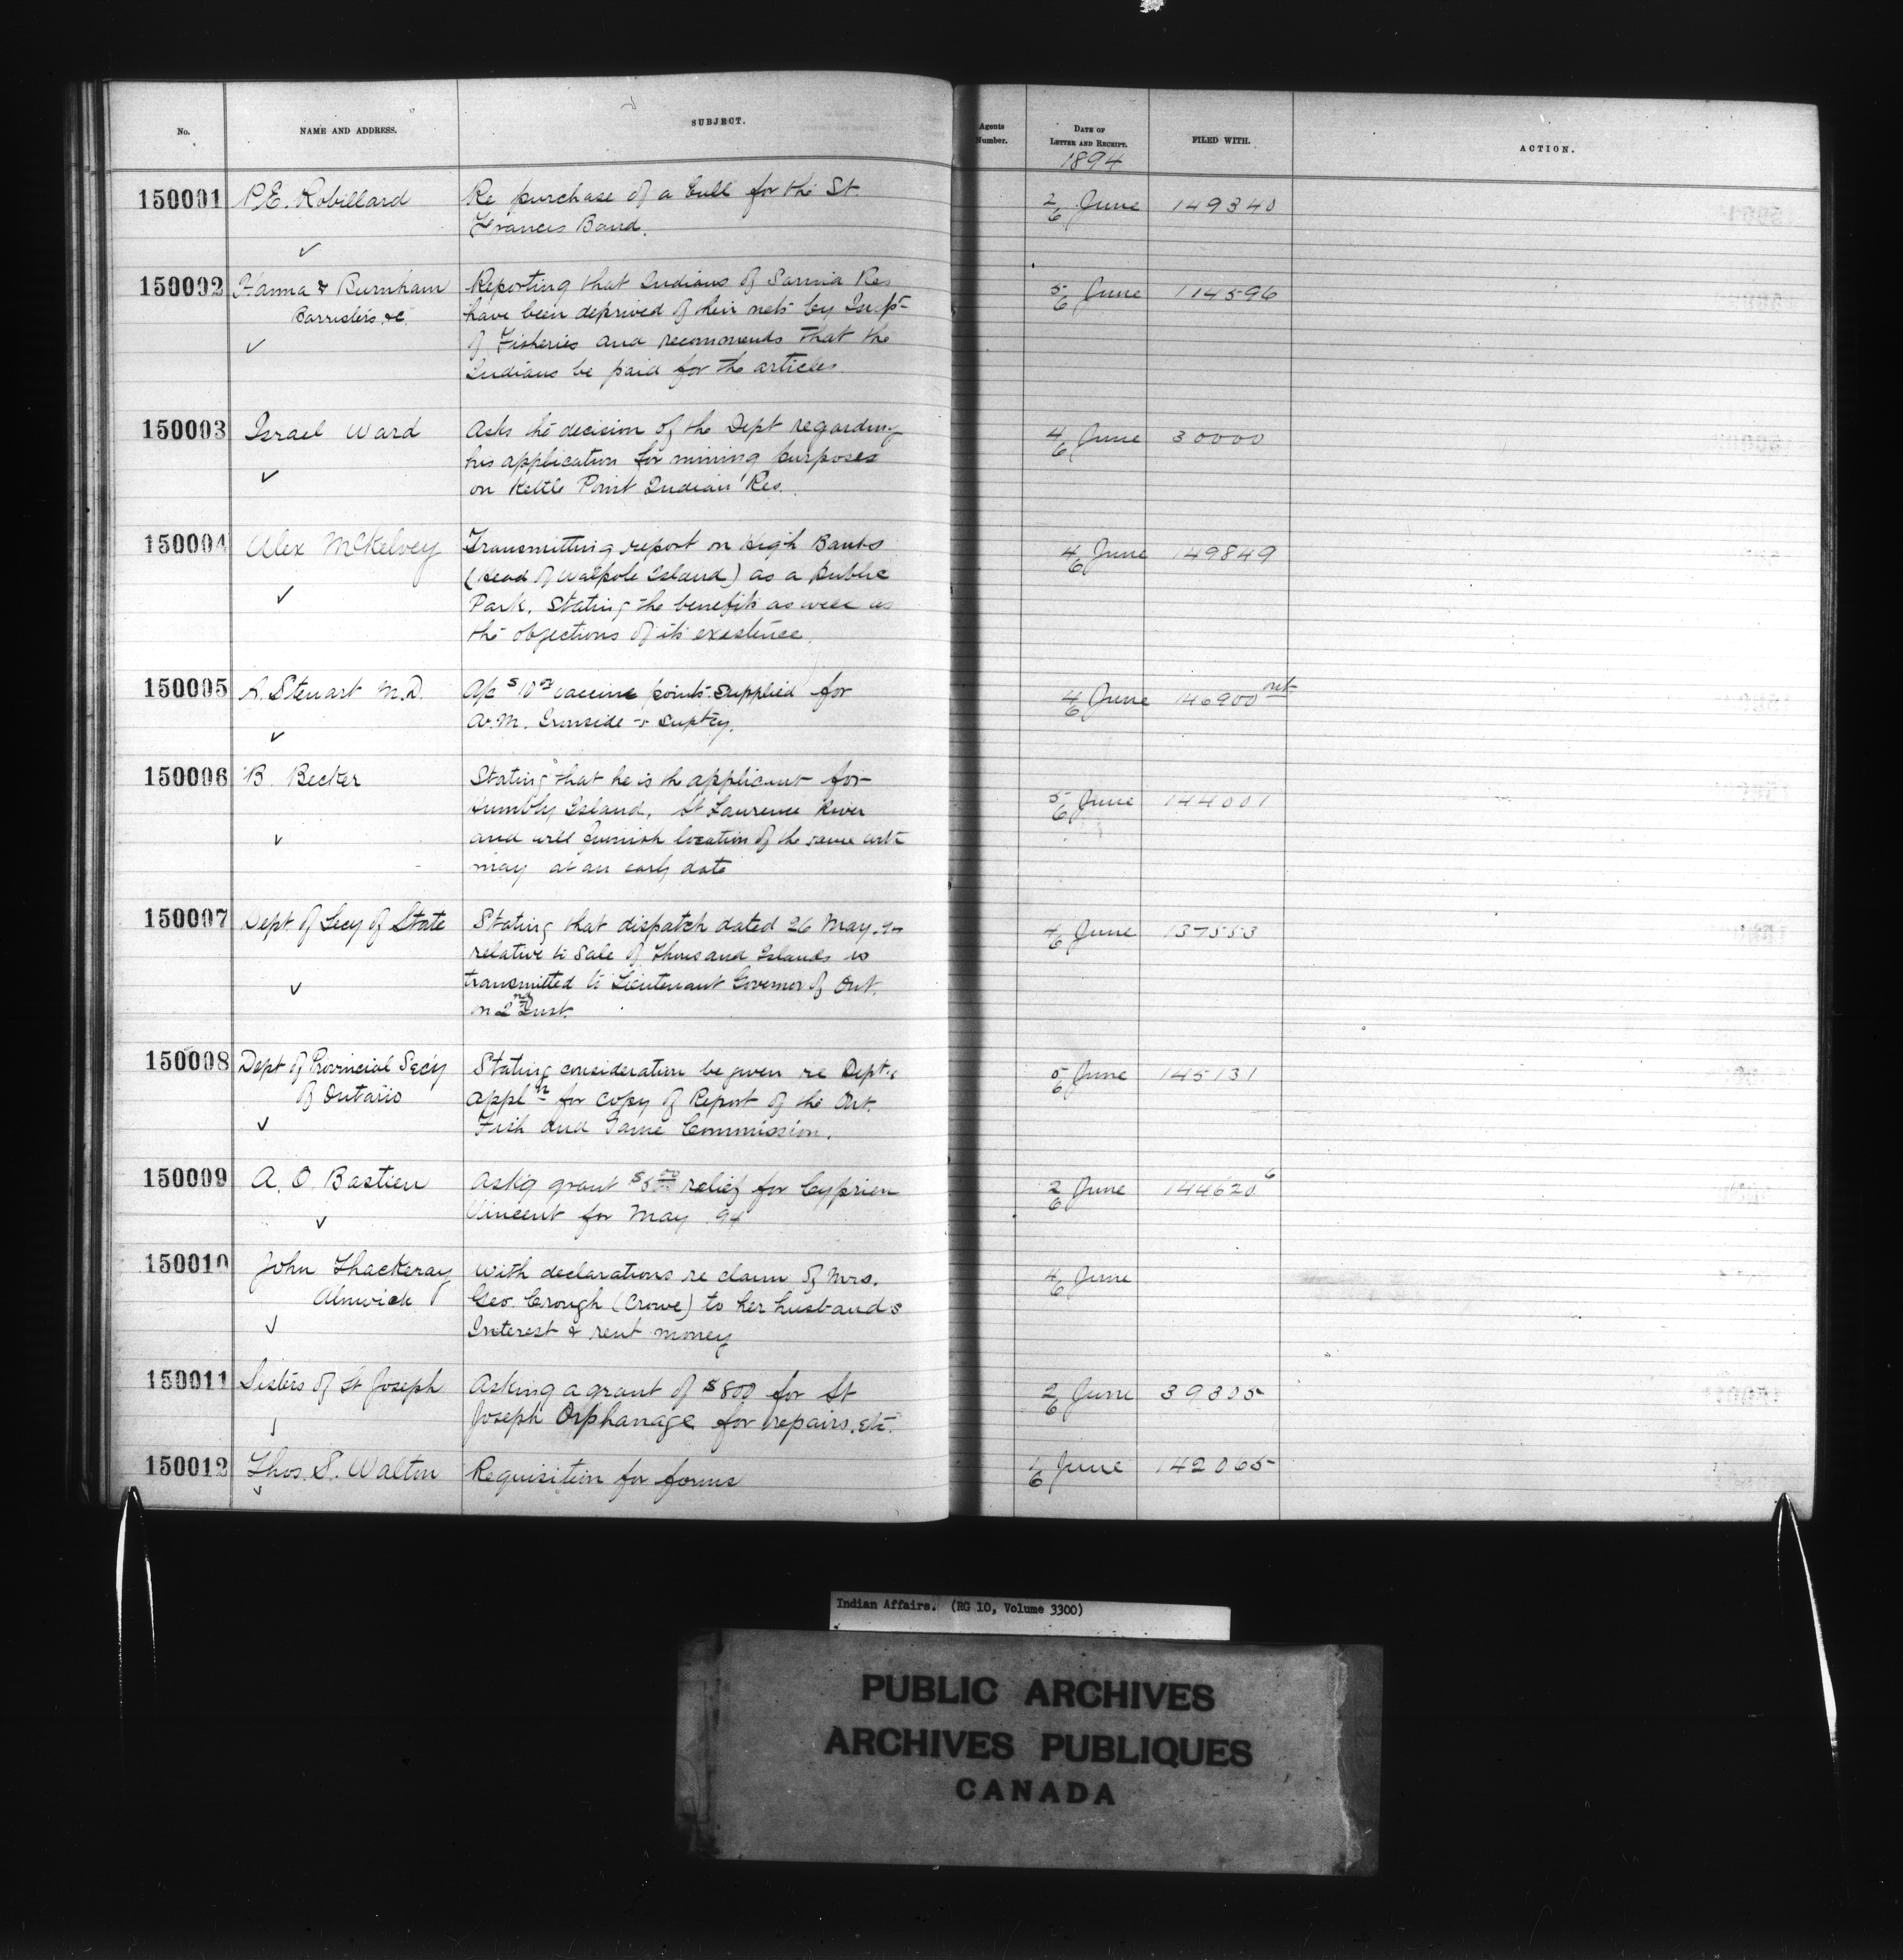 No. NAME AND ADDRESS. SUBJECT. Agents Number. DATE OF LETTER AND RECEIPT. FILED WITH. ACTION.
1894
150001 P.E. Robillard Re purchase of a bull for the St. 2/6 June 149340
Francis Band.
150002 Hanna & Burnham Reporting that Indians of Sarnia Res 5/6 June 114596
Barristers &c. have been deprived of their nets by Insp.
of Fisheries and recommends that the
Indians be paid for the articles.
150003 Israel Ward Asks the decision of the Dept regarding 4/6 June 30000
his application for mining purposes
on Kettle Point Indian Res.
150004 Alex McKelvey Transmitting report on High Banks 4/6 June 149849
(Head of Walpole Island) as a public
Park, stating the benefits as well as
the objections of its existence.
150005 A. Stewart M.D. A/c $10 vaccine points supplied for 4/6 June 146900
A.M. Ironside Suptcy.
150006 B. Becker Stating that he is the applicant for 5/6 June 144001
Island, St Lawrence River
and will furnish location of the same with
may at an early date
150007 Dept of Secy of State Stating that dispatch dated 26 May 4/6 June 137553
relative to Sale of Thousand Islands is
transmitted to Lieutenant Governor of Ont.
on 2nd Inst.
150008 Dept of Provincial Secy Stating consideration be given re Dept.s 5/6 June 145131
of Ontario appln for copy of Report of the Ont.
Fish and Game Commission.
150009 A. O. Bastien Ask'g grant relief for Cyprien 2/6 June 144620 6
Vincent for May 94
150010 John Thackeray With declarations re claim of Mrs. 4/6 June
Alnwick Geo. Crough (Crowe) to her husbands
Interest & rent money
150011 Sisters of St Joseph Asking a grant of $800 for St 2/6 June 39305
Joseph Orphanage for repairs, etc.
150012 Thos. S. Walton Requisition for forms 1/6 June 142065
Indian Affairs. (RG 10, Volume 3300)
PUBLIC ARCHIVES
ARCHIVES PUBLIQUES
CANADA